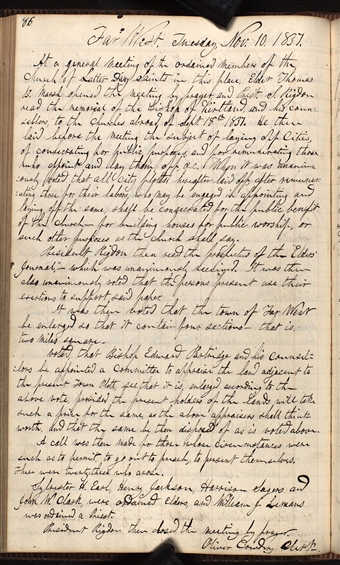 86
Far West. Tuesday, Nov. 10. 1837.
At a general meeting of the ordained members of the
Church of Latter Day Saints in this place, Elder Thomas
B. Marsh opened the meeting by prayer, and Prest. S. Rigdon
read the memorial of the Bishop of Kirtland and his coun-
sellors, to the Churches abroad of Sept 18th 1837. He then
laid before the meeting the subject of laying off Cities,
of consecrating for public purposes and for remunerating those
who appoint and lay them off &c. When it was unanim-
ously voted that all City plotes hereafter laid off, after remuner-
ating those for their labors, who may be engaged in appointing and
laying off the same, shall be consecrated for the public benefit
of the church— for building houses for public worship, or
such other purposes as the church shall say.
President Rigdon then read the prospectus of the "Elders'
Journal,"— which was unanimously received. It was then
also unanimously voted that the persons present use their
exertions to support said paper.
It was then voted that the town of Far West
be enlarged so that it contain four sections— that is,
two miles square—
Voted, that Bishop Edward Partridge and his Counsel-
lors be appointed a Committee to appraise the land adjacent to
the present Town Plott, see that it is, enlarged according to the
above vote, provided the present holders of the Lands will take
such a price for the same, as the above appraisers shall think
worth, and that the same be then disposed of as is voted above.
A call was then made for those whose circumstances were
such as to permit to go out to preach, to present themselves.
There were twenty three who arose.
Sylvester H. Earl, Henry Jackson, Harrison Sagers and
John W. Clark, were ordained Elders, and William J. Lemans
was ordained a Priest.
President Rigdon then closed the meeting by prayer.
Oliver Cowdery, Clerk.